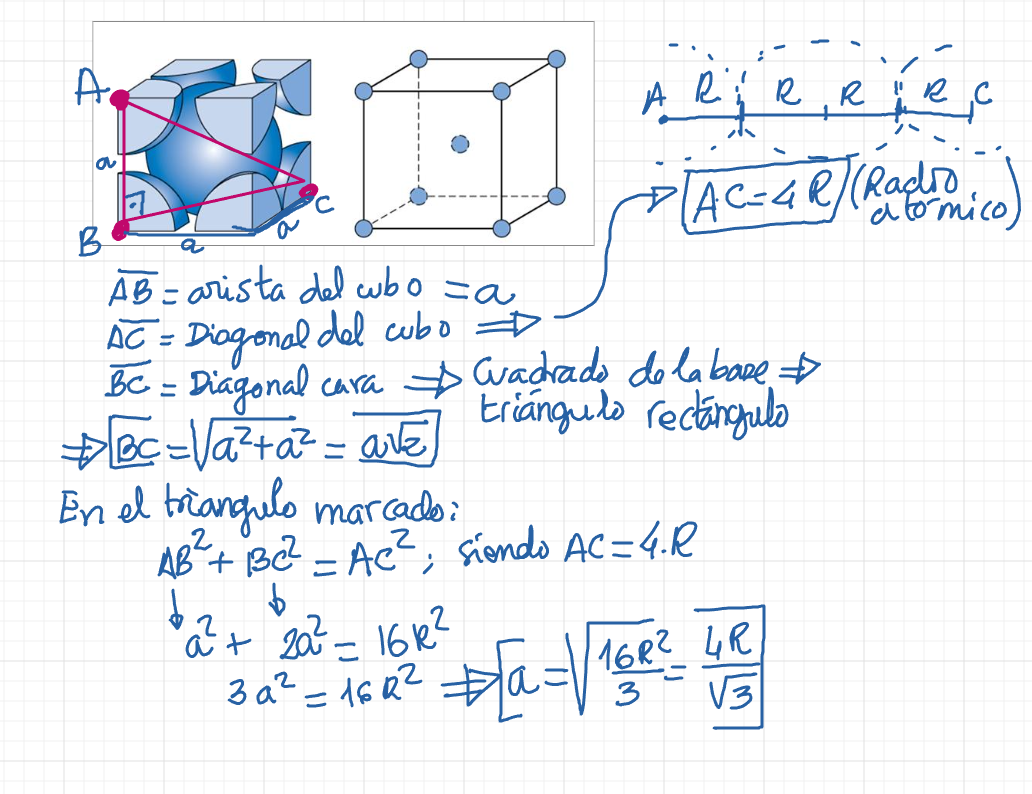 A
a
B
a
a
C
A R R R R C
AC = 4R (Radio
atómico)
AB = arista del cubo = a
AC = Diagonal del cubo ⇒
BC = Diagonal cara ⇒ Cuadrado de la base ⇒
triángulo rectángulo
⇒ BC = √a²+a² = a√2
En el triangulo marcado:
AB² + BC² = AC² ; siendo AC = 4.R
↓ ↓
a² + 2a² = 16R²
3a² = 16R² ⇒ a = √16R²/3 = 4R/√3